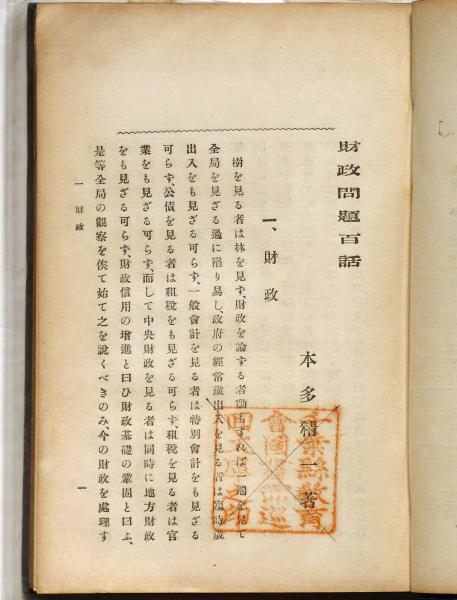 財政問題百話
本多精一著
一、財政
樹を見る者は林を見ず、財政を論ずる者動もすれば一端を見て
全局を見ざる過に陷り易し、政府の經常歲出入を見る者は臨時歲
出入をも見ざる可らず、一般會計を見る者は特別會計をも見ざる
可らず、公債を見る者は租稅をも見ざる可らず、租稅を見る者は官
業をも見ざる可らず、而して中央財政を見る者は同時に地方財政
をも見ざる可らず、財政信用の增進と曰ひ財政基礎の鞏固と曰ふ、
是等全局の觀察を俟て始て之を說くべきのみ、今の財政を處理す
一 財政
一
千葉縣敎育
會國